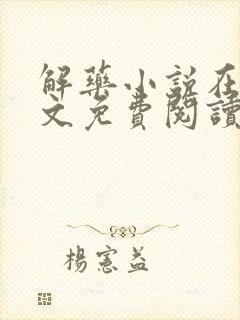 解藥小説在
文免費閱讀
楊憲益